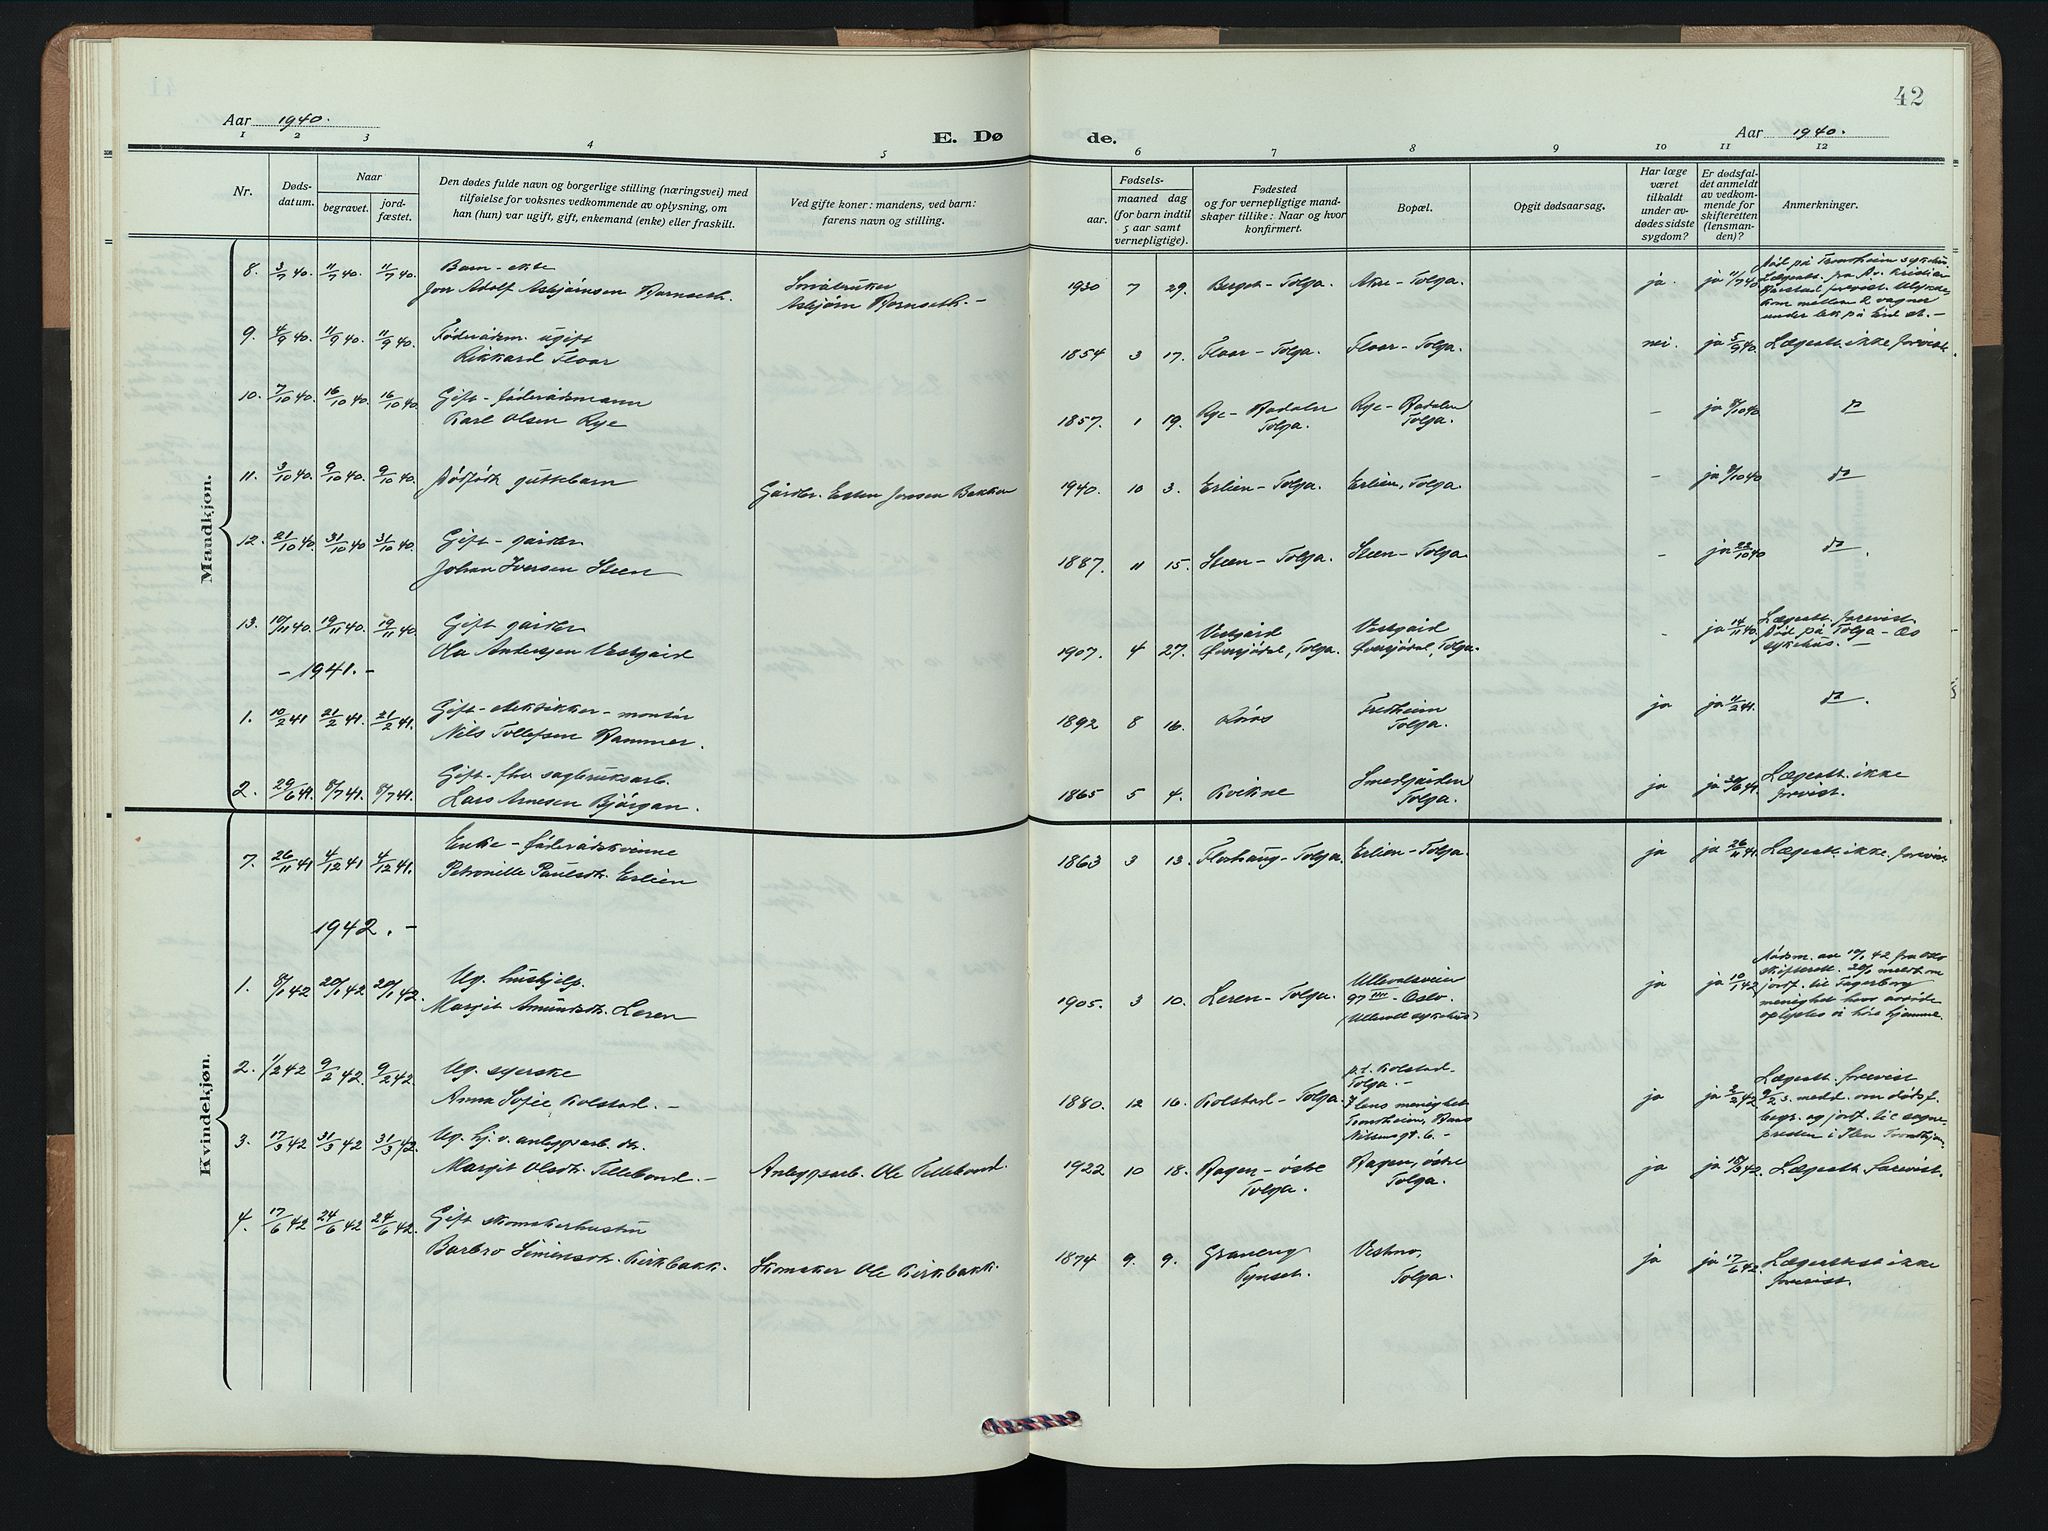 42
Aar 1940.
E. Dø
de.
Aar 1940.
1 2 3 4 5 6 7 8 9 10 11 12
Nr.
Døds-
datum.
Naar
begravet.
jord-
fæstet.
Den dødes fulde navn og borgerlige stilling (næringsvei) med
tilføielse for voksnes vedkommende av oplysning, om
han (hun) var ugift, gift, enkemand (enke) eller fraskilt.
Ved gifte koner: mandens, ved barn:
farens navn og stilling.
Fødsels-
aar.
maaned dag
(for barn indtil
5 aar samt
vernepligtige).
Fødested
og for vernepligtige mand-
skaper tillike: Naar og hvor
konfirmert.
Bopæl.
Opgit dødsaarsag.
Har læge
været
tilkaldt
under av-
dødes sidste
sygdom?
Er dødsfal-
det anmeldt
av vedkom-
mende for
skifteretten
(lensman-
den)?
Anmerkninger.
Mandkjøn.
8. 3/7 40. 11/7 40. 11/7 40. Barn - ekte
Jon Adolf Asbjørnsen
Småbruker
Asbjørn
1930 7 29. Berget - Tolga. Tolga. ja. ja 11/7 40
Død på Trondheim sykehus.
under lek på
9. 4/9 40. 11/9 40. 11/9 40. Føderådsm. ugift
Rikkard Floor
1854 3 17. Floor - Tolga. Floor - Tolga. nei. ja 5/9 40. Lægeatt. ikke forevist.
10. 7/10 40. 16/10 40. 16/10 40. Gift - føderådsmann
Karl Olsen Rye
1857. 1 19. Rye - Tolga. Rye - Tolga. - ja 8/10 40 do
11. 3/10 40. 9/10 40. 9/10 40. Dødfødt guttebarn
Gårdbr. Esten Jonsen Bakken
1940. 10 3. Erlien - Tolga. Erlien, Tolga. - ja 8/10 40 do
12. 21/10 40. 31/10 40. 31/10 40. Gift - gårdbr.
Johan Iversen Steen
1887. 11 15. Steen - Tolga. Steen - Tolga. - ja 22/10 40 do.
13. 10/11 40. 19/11 40. 19/11 40. Gift gårdbr.
Ola Andersen Vestgård
1907. 4 27. Vestgård
Øversjødal, Tolga.
Vestgård
Øversjødal, Tolga.
- ja 14/11 40. Lægeatt. forevist.
Død på Tolga - Os
sykehus. -
- 1941. -
1. 10/2 41 21/2 41. 21/2 41. Gift - elektriker - montør
Nils Tollefsen Rammer.
1892 8 16. Røros Fredheim
Tolga.
ja ja 11/2 41. do.
2. 29/6 41. 8/7 41. 8/7 41. Gift - fhv. sagbruksarb.
Lars Arnesen Bjørgan.
1865 5 4. Kvikne Smedgården
Tolga.
ja ja 30/6 41. Lægeatt. ikke
forevist.
Kvindekjøn.
7. 26/11 41 4/12 41 4/12 41. Enke - føderådskvinne
Petronille Paulsdtr. Erlien
1863 3 13. Florhaug - Tolga. Erlien - Tolga. ja ja 26/11 41. Lægeatt. ikke forevist
1942. -
1. 8/1 42 20/1 42 20/1 42. Ug. hushjelp.
Margit Amundsdtr. Leren
1905. 3 10. Leren - Tolga. Ullevålsveien
97 - Oslo.
(Ullevål sykehus)
ja ja 10/1 42
Dødsm. av 10/1 42 fra Oslo
skifterett. 20/1 meldt om
jordf. til Fagerborg
menighet hvor avdøde
oplystes å høre hjemme.
2. 1/2 42 9/2 42 9/2 42. Ug. syerske
Anna Sofie Kolstad. -
1880. 12 16. Kolstad - Tolga. p.t. Kolstad.
Tolga. -
Ilens menighet
Trondheim, Hans
Nissensgt. 6. -
ja ja 2/2 42. Lægeatt. forevist
9/2 s. medd. om dødsf.
begr. og jordf. til sogne-
presten i Ilen Trondhjem.
3. 17/3 42 31/3 42 31/3 42. Ug. hj. v. anleggsarb. dtr.
Margit Olsdtr. Tellebond. -
Anleggsarb. Ole Tellebond.
1922 10 18. Bagen - østre
Tolga.
Bagen, østre
Tolga.
ja ja 18/3 42. Lægeatt. forevist.
4. 17/6 42 24/6 42 24/6 42. Gift skomakerhustru
Barbro Simensdtr. Kirkbakk.
Skomaker Ole Kirkbakk.
1874 9. 9. Graneng
Tynset.
Vestmo,
Tolga.
ja ja 17/6 42. Lægeattest ikke
forevist.